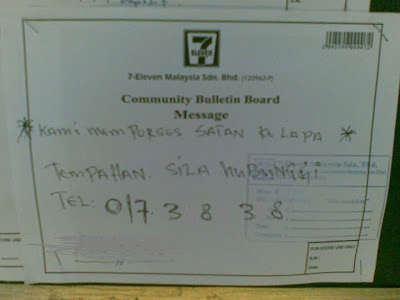 7
ELEVEN
7-Eleven Malaysia Sdn. Bhd. (120962-P)
Community Bulletin Board
Message
* KAMI MEMPURSES SATAN KELAPA *
TEMPAHAN. SILA HUBUNGI
TEL: 017 38 38
FOR STORE USE ONLY
S.N.:
Date: